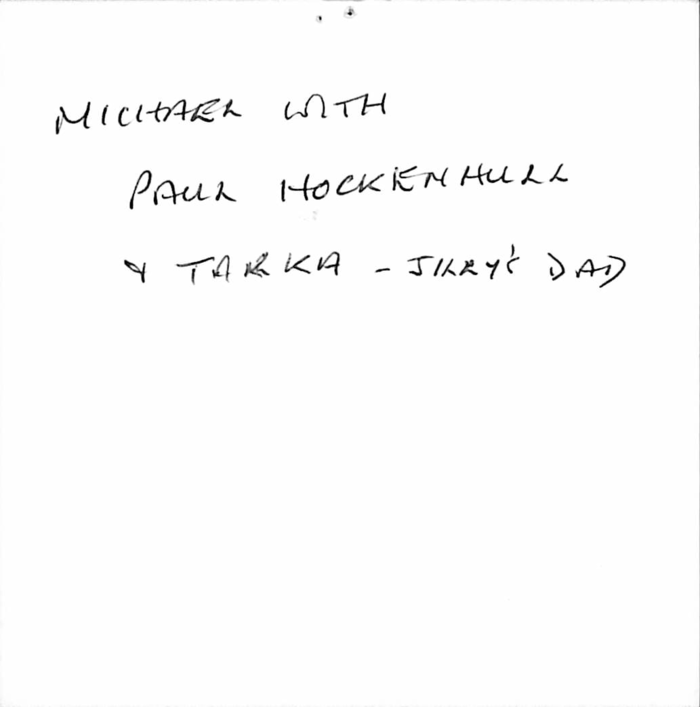 MICHAEL WITH
PAUL HOCKENHULL
& TARKA - JILLY'S DAD